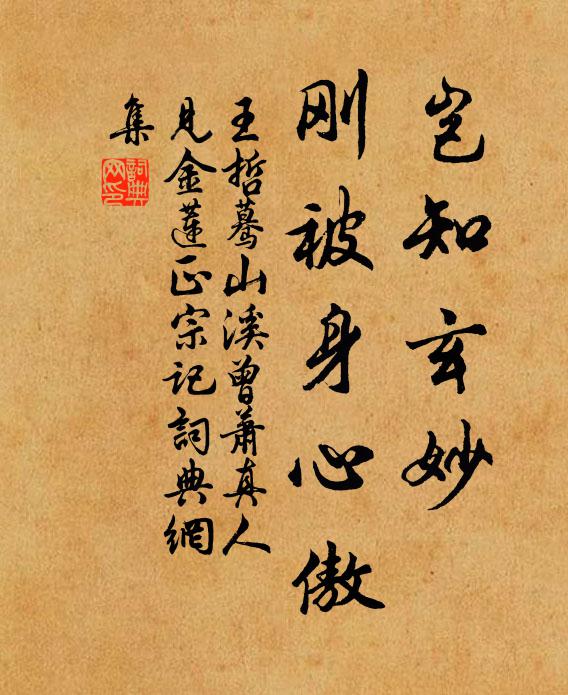 岂知玄妙
刚被身心傲
王哲蓦山溪曾萧真人
见金莲正宗记词典網
集
詞典
网印